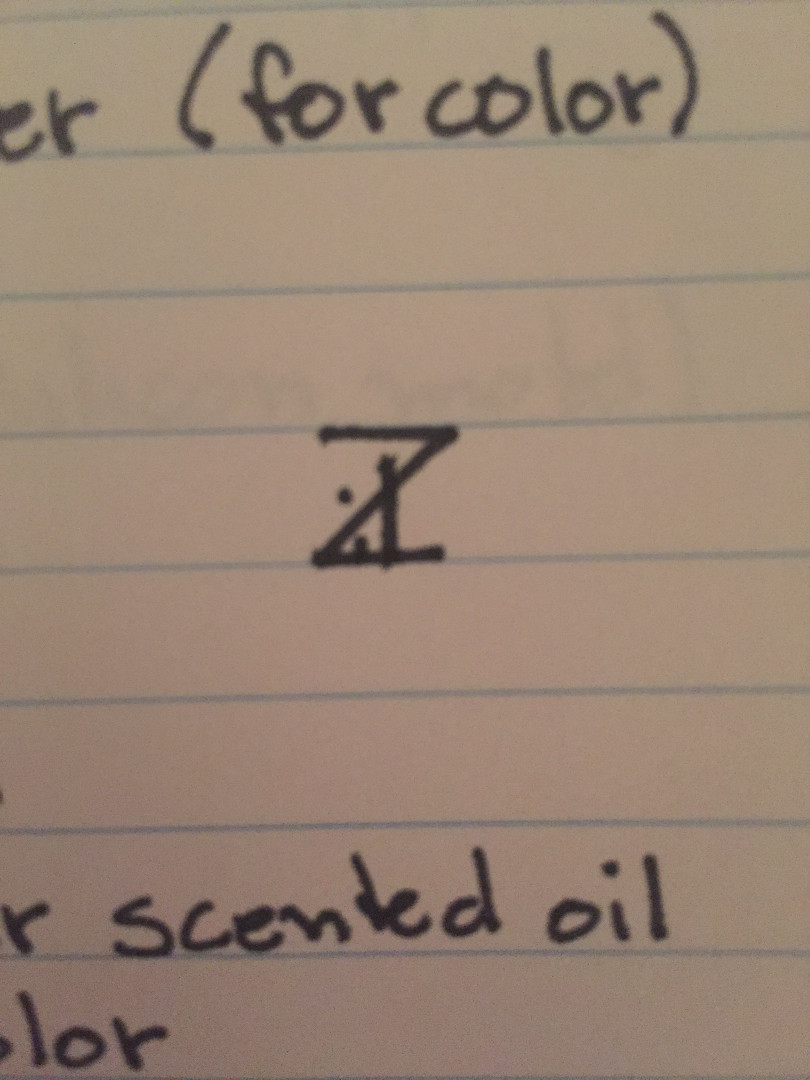 er (for color)
r scented oil
olor